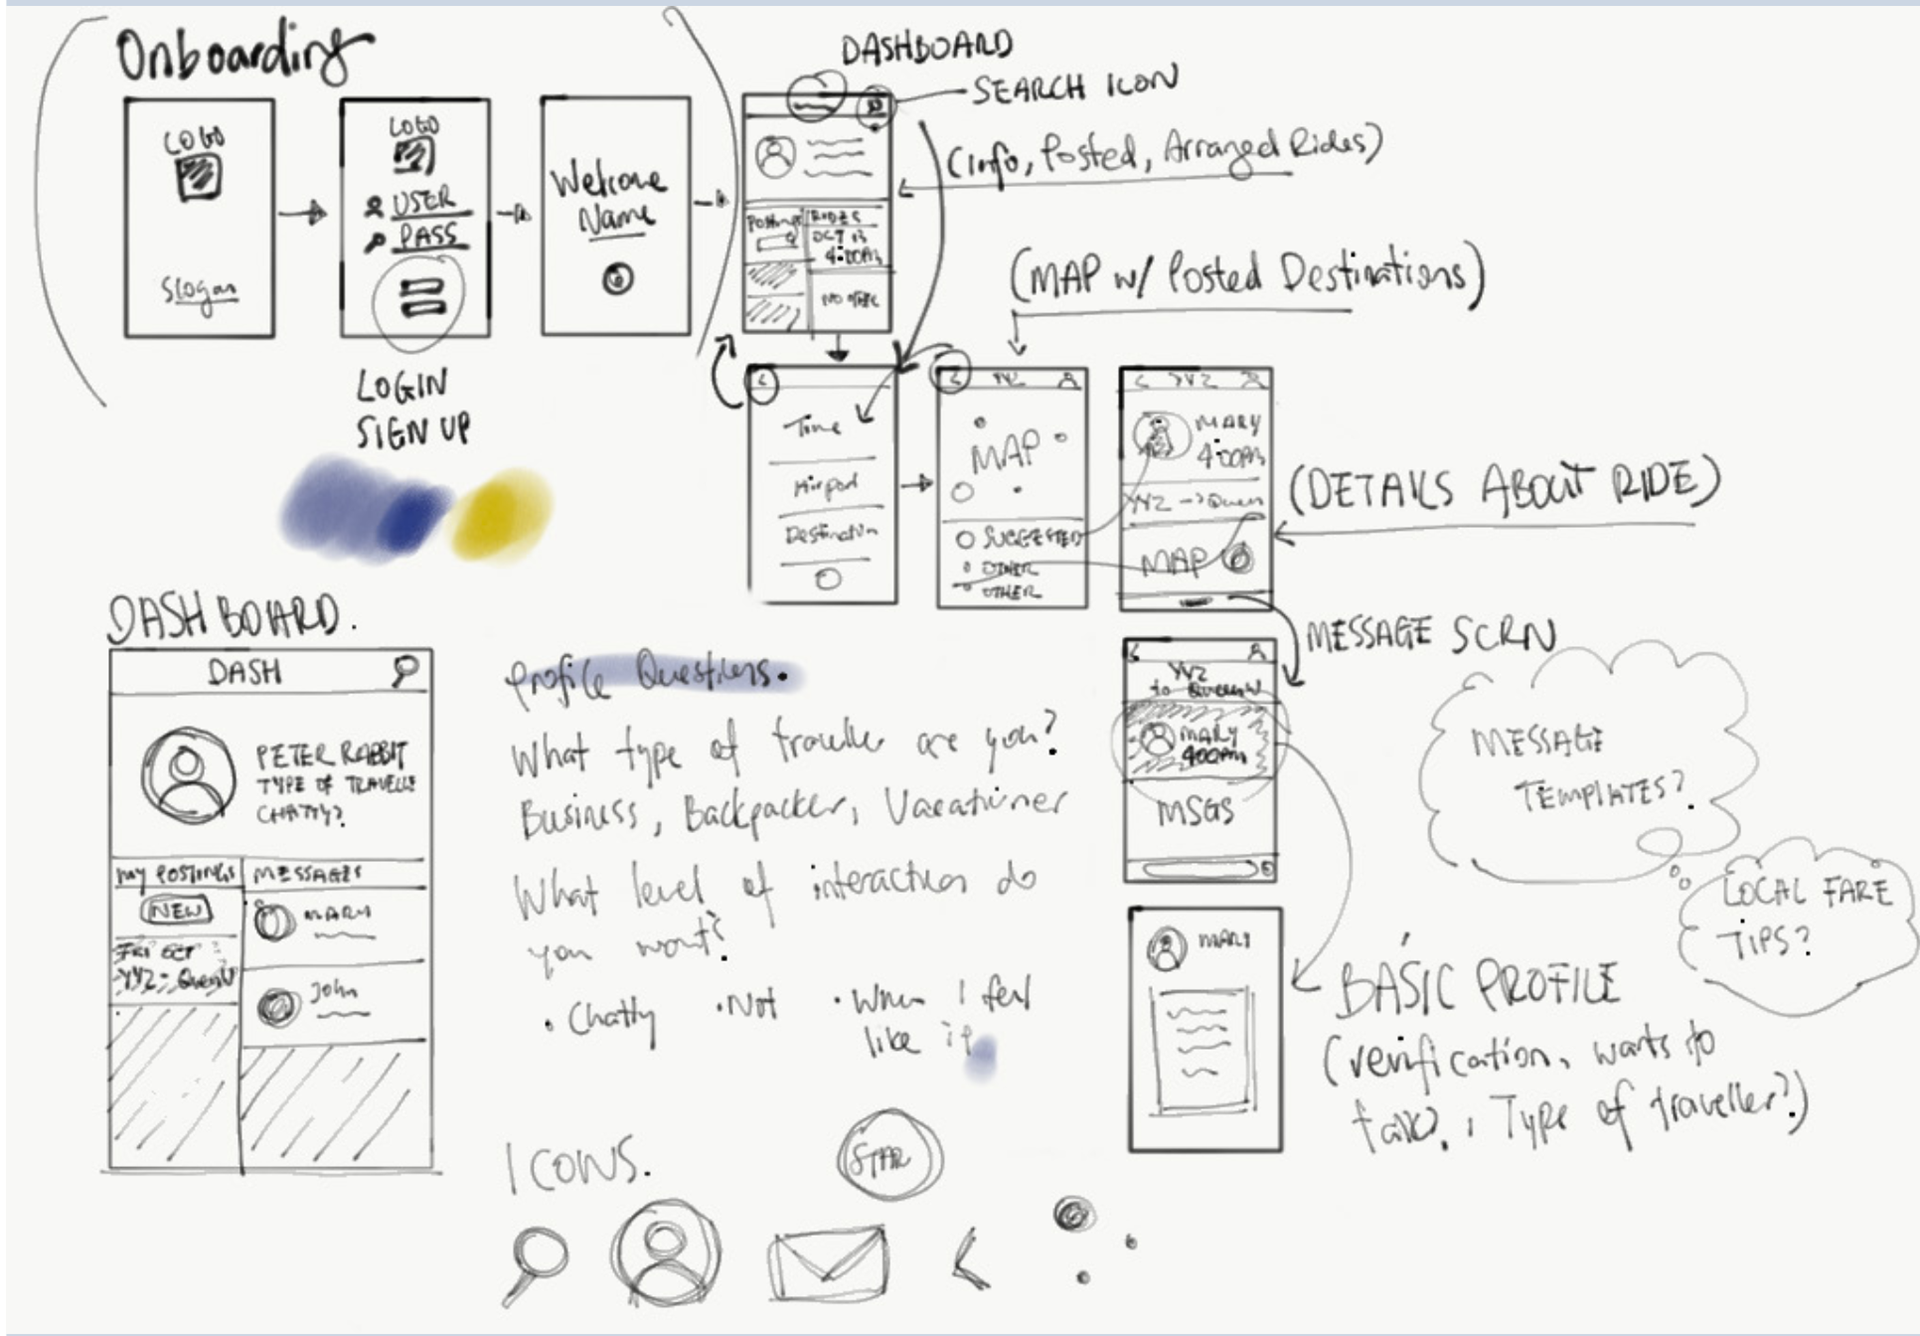 Onboarding
LOGO
Slogan
LOGO
USER
PASS
LOGIN
SIGN UP
Welcome
Name
DASHBOARD
SEARCH ICON
(Info, Posted, Arranged Rides)
Postings
RIDES
OCT 13
4:00PM
NO OTHER
(MAP w/ Posted Destinations)
Time
Airport
Destination
XYZ
MAP
SUGGESTED
OTHER
OTHER
YYZ
MARY
4:00PM
YYZ -> Queen
MAP
(DETAILS ABOUT RIDE)
MESSAGE SCRN
YYZ
to Queen W
MARY
4:00pm
MSGS
MESSAGE
TEMPLATES?
LOCAL FARE
TIPS?
MARY
BASIC PROFILE
(verification, wants to
talk?, Type of traveller?)
DASHBOARD.
DASH
PETER RABBIT
TYPE OF TRAVELLE
CHATTY?
MY POSTINGS
MESSAGES
NEW
MARY
YYZ - Queen W
John
Profile Questions.
What type of traveller are you?
Business, Backpacker, Vacationer
What level of interaction do
you want?
• Chatty
• Not
• When I feel
like it
ICONS.
STAR